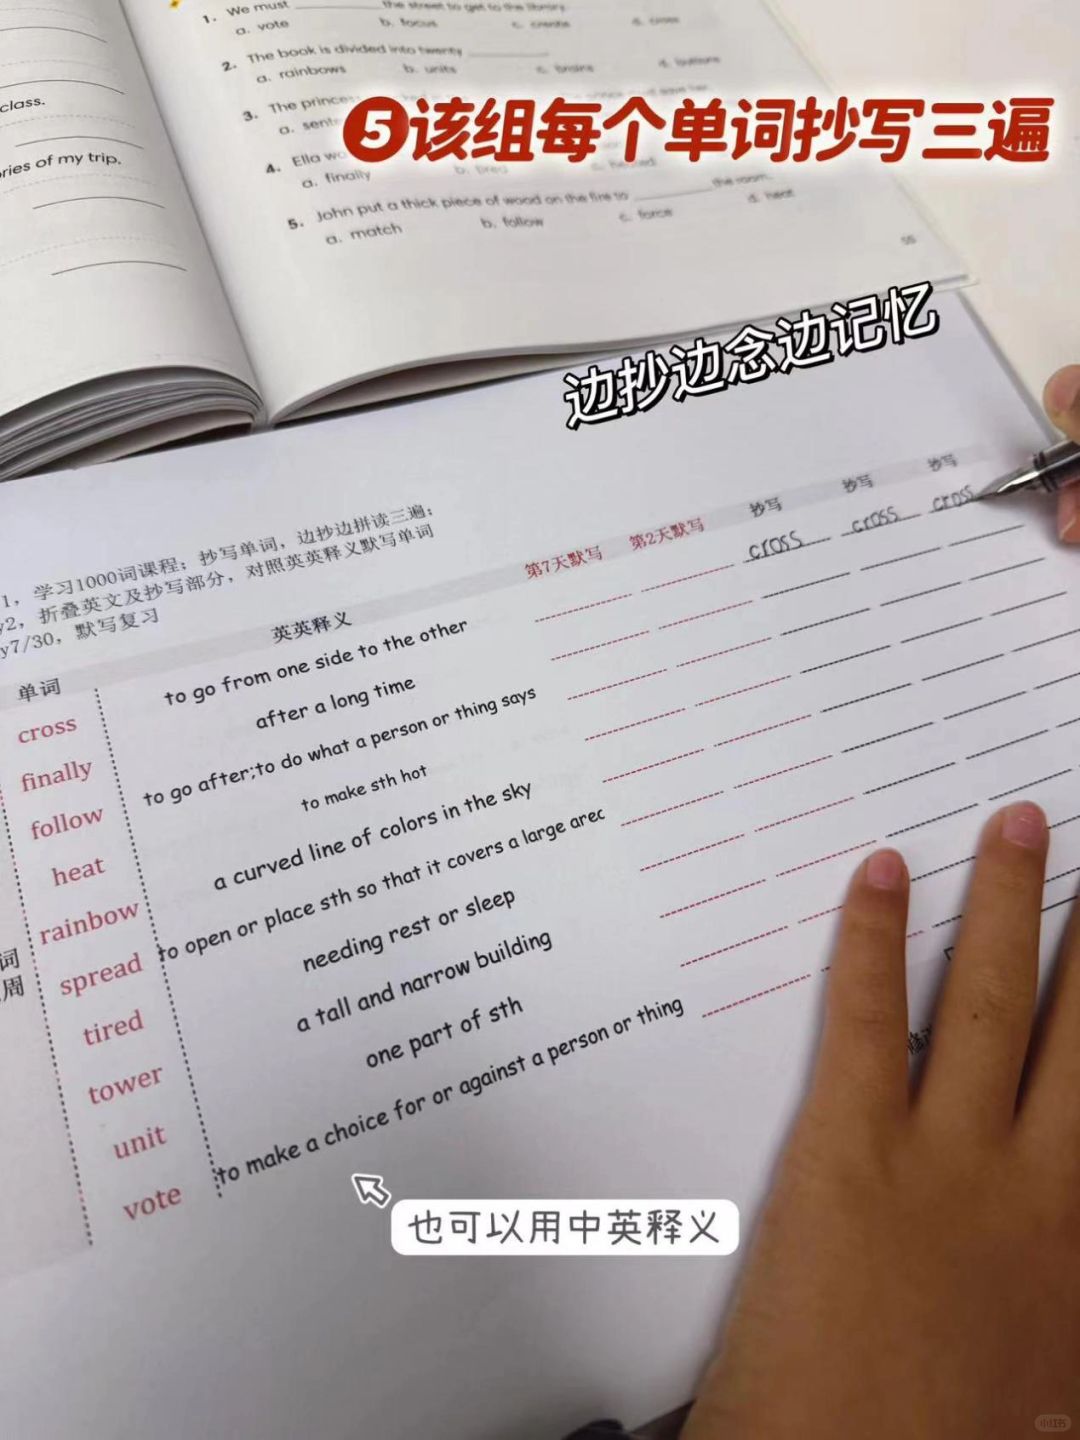 1. We must ________ the street to get to the library.
a. vote b. focus c. create d. cross
2. The book is divided into twenty ________
a. rainbows b. units c. brains d. buttons
3. The princess
a.
4. Ella
a. finally b. tired c.
5. John put a thick piece of wood on the fire to ________ the room.
a. match b. follow c. force d. heat
55
class.
ries of my trip.
❺该组每个单词抄写三遍
边抄边念边记忆
1，学习1000词课程；抄写单词，边抄边拼读三遍；
y2，折叠英文及抄写部分，对照英英释义默写单词
y7/30，默写复习
单词 英英释义 第7天默写 第2天默写 抄写 抄写 抄写
cross to go from one side to the other cross cross cross
finally after a long time
follow to go after;to do what a person or thing says
heat to make sth hot
rainbow a curved line of colors in the sky
spread to open or place sth so that it covers a large area
tired needing rest or sleep
tower a tall and narrow building
unit one part of sth
vote to make a choice for or against a person or thing
词
周
也可以用中英释义
小红书